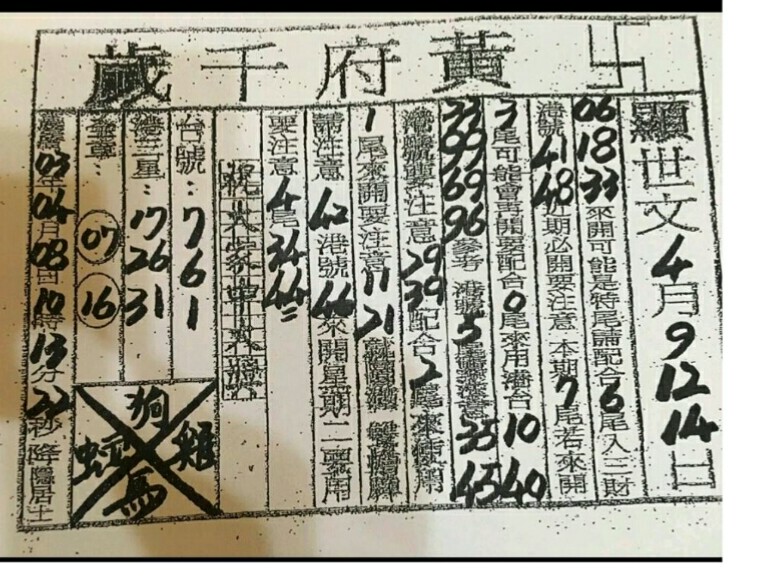 黃府千歲
顯世文4月9 12 14日
06 18 33來開可能是特尾請配合6尾入三財
港號41 48近期必開要注意 本期7尾若來開
3尾可能會再開要配合0尾來用港台10 40
33 99 69 96參考 港號5尾 35 45
港號雙要注意29 39配合2尾來使用
1尾來開要注意11 21
請注意42港號44來開星期二要用
要注意4尾34 44
祝大家中大獎
台號:7 6 1
港二星:17 26 31
07 16
狗 雞 馬
03年04月08日10時13分22秒降隱居士